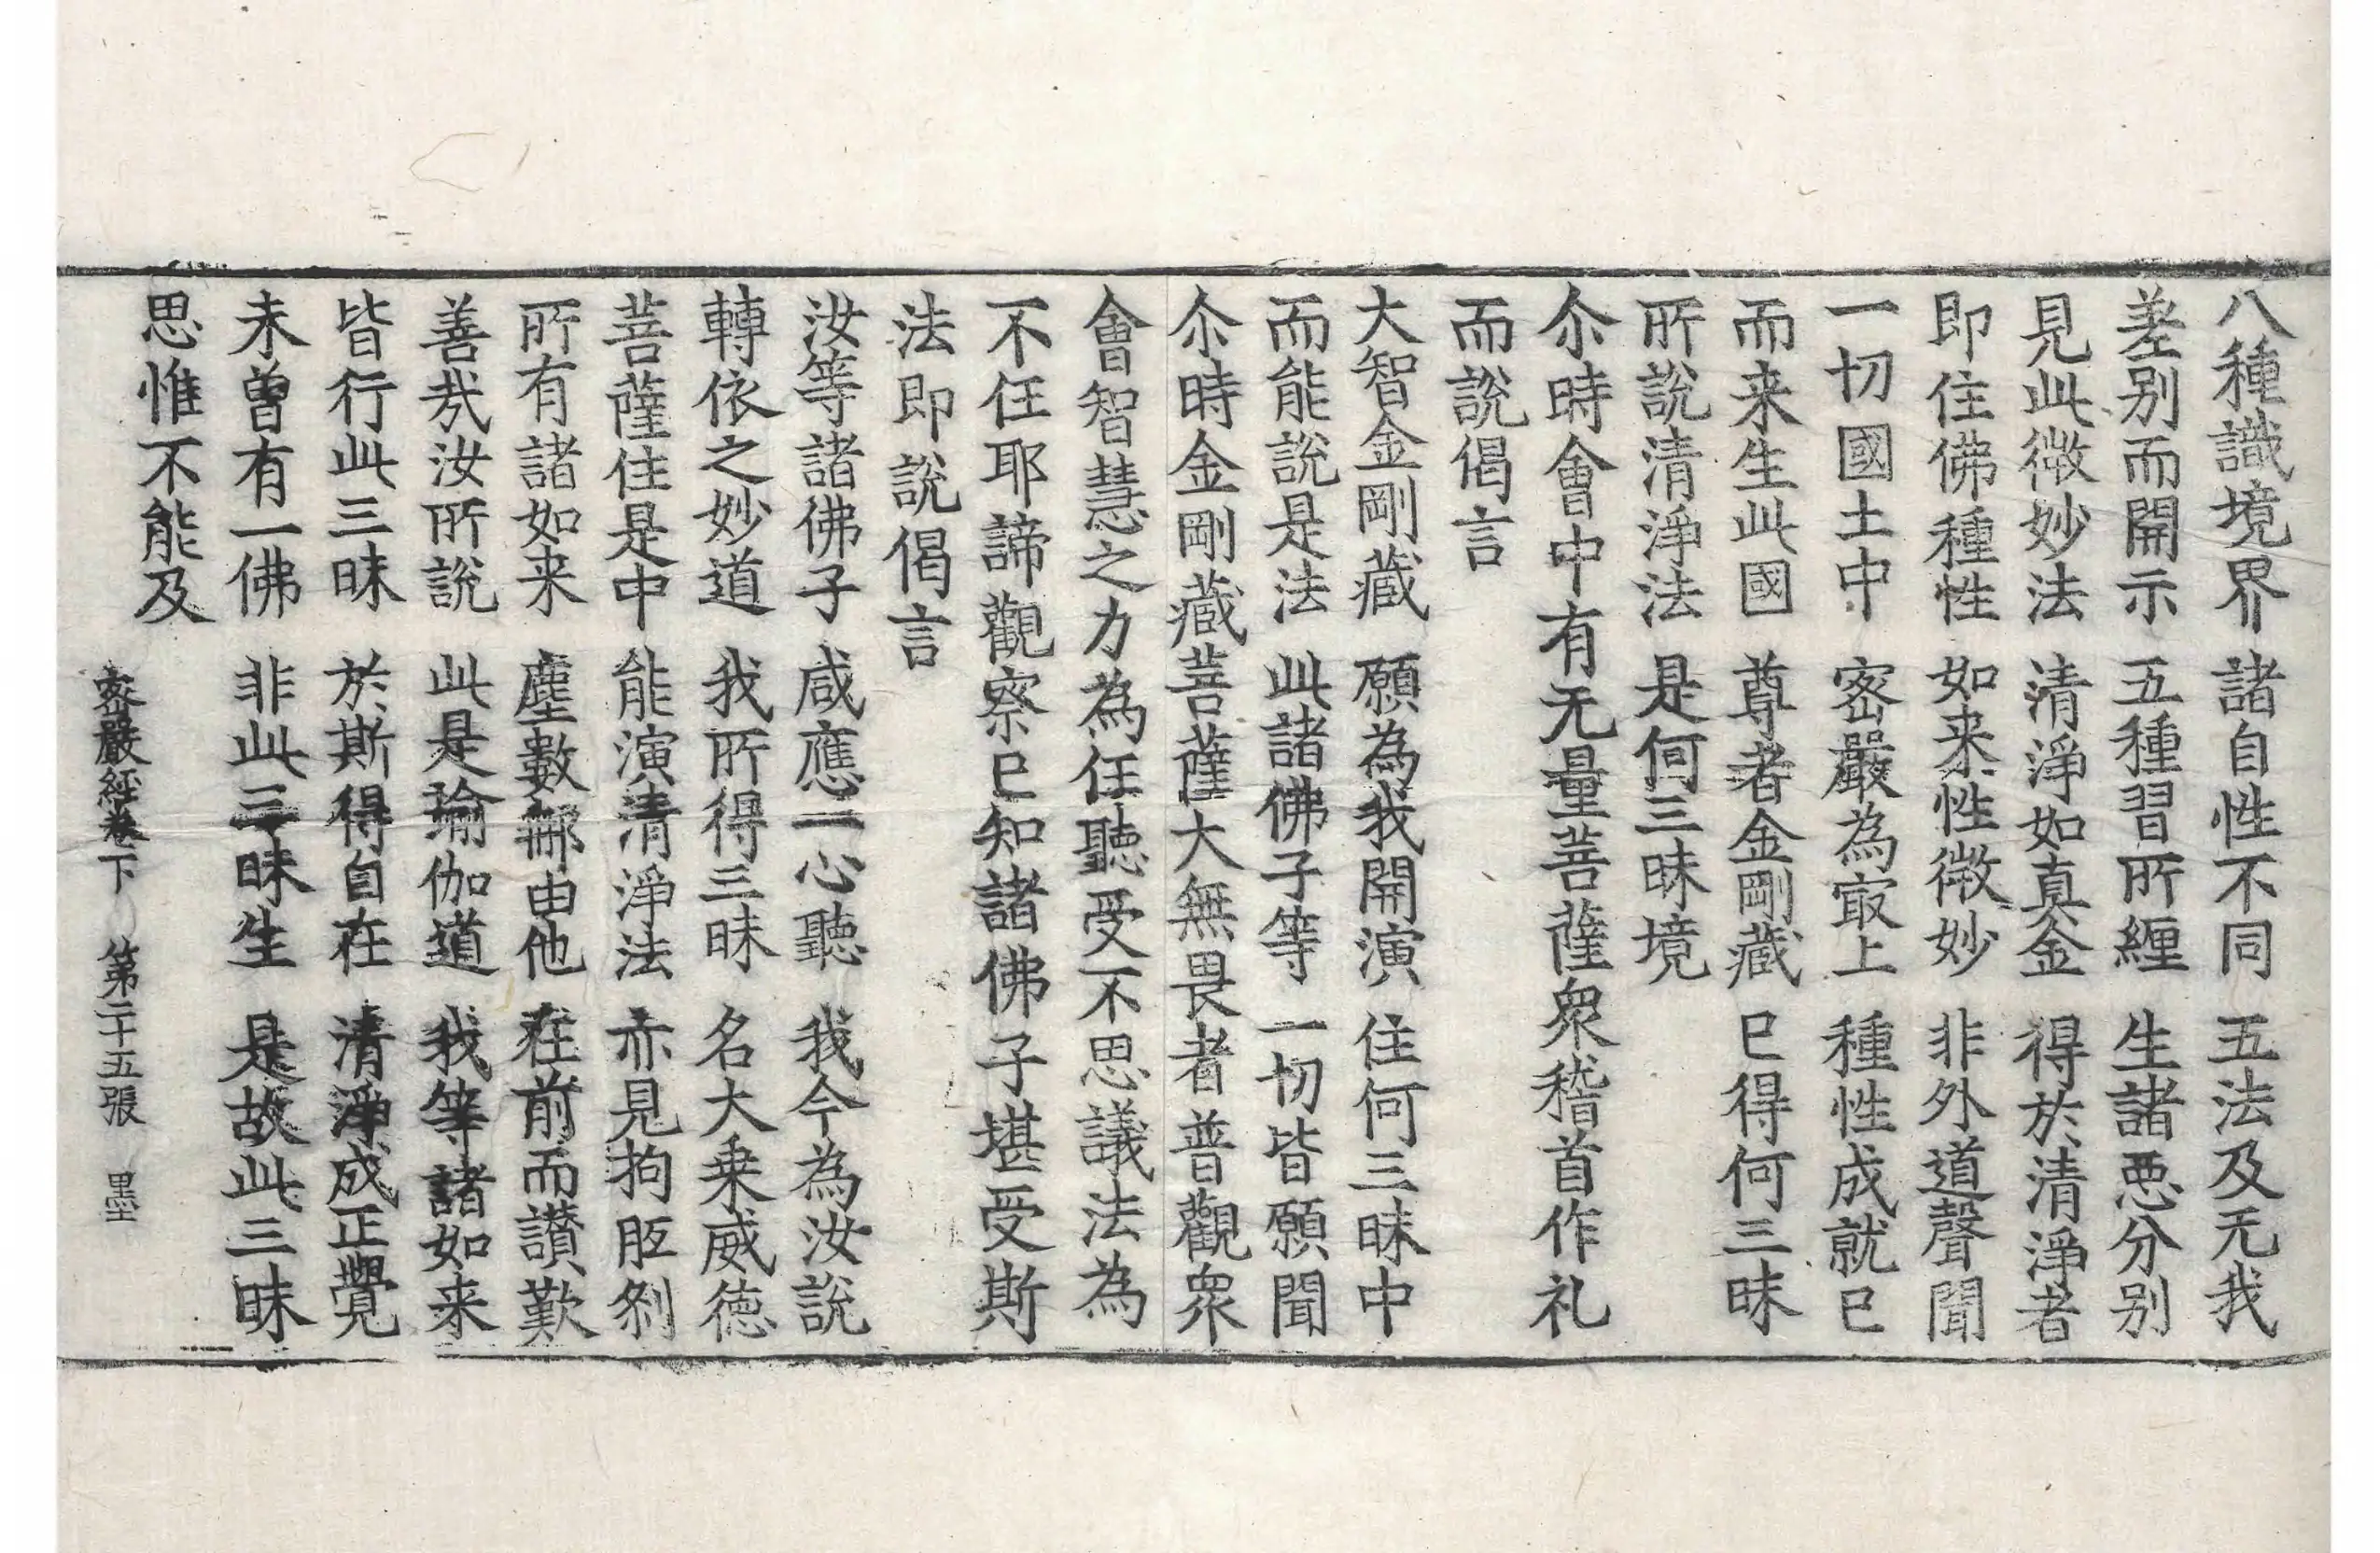 八種識境界　諸自性不同　五法及无我
差别而開示　五種習所纒　生諸惡分别
見此微妙法　清淨如真金　得於清淨者
即住佛種性　如来性微妙　非外道聲聞
一切國土中　密嚴為㝡上　種性成就已
而来生此國　尊者金剛藏　已得何三昧
所說清淨法　是何三昧境
尒時會中有无量菩薩衆稽首作礼
而說偈言
大智金剛藏　願為我開演　住何三昧中
而能說是法　此諸佛子等　一切皆願聞
尒時金剛藏菩薩大無畏者普觀衆
會智慧之力為任聽受不思議法為
不任耶諦觀察已知諸佛子堪受斯
法即說偈言
汝等諸佛子　咸應一心聽　我今為汝說
轉依之妙道　我所得三昧　名大乗威徳
菩薩住是中　能演清淨法　亦見拘胝刹
所有諸如来　塵數那由他　在前而讃歎
善哉汝所說　此是瑜伽道　我等諸如来
皆行此三昧　於斯得自在　清淨成正覺
未曾有一佛　非此三昧生　是故此三昧
思惟不能及
密嚴經卷下　第二十五張　墨